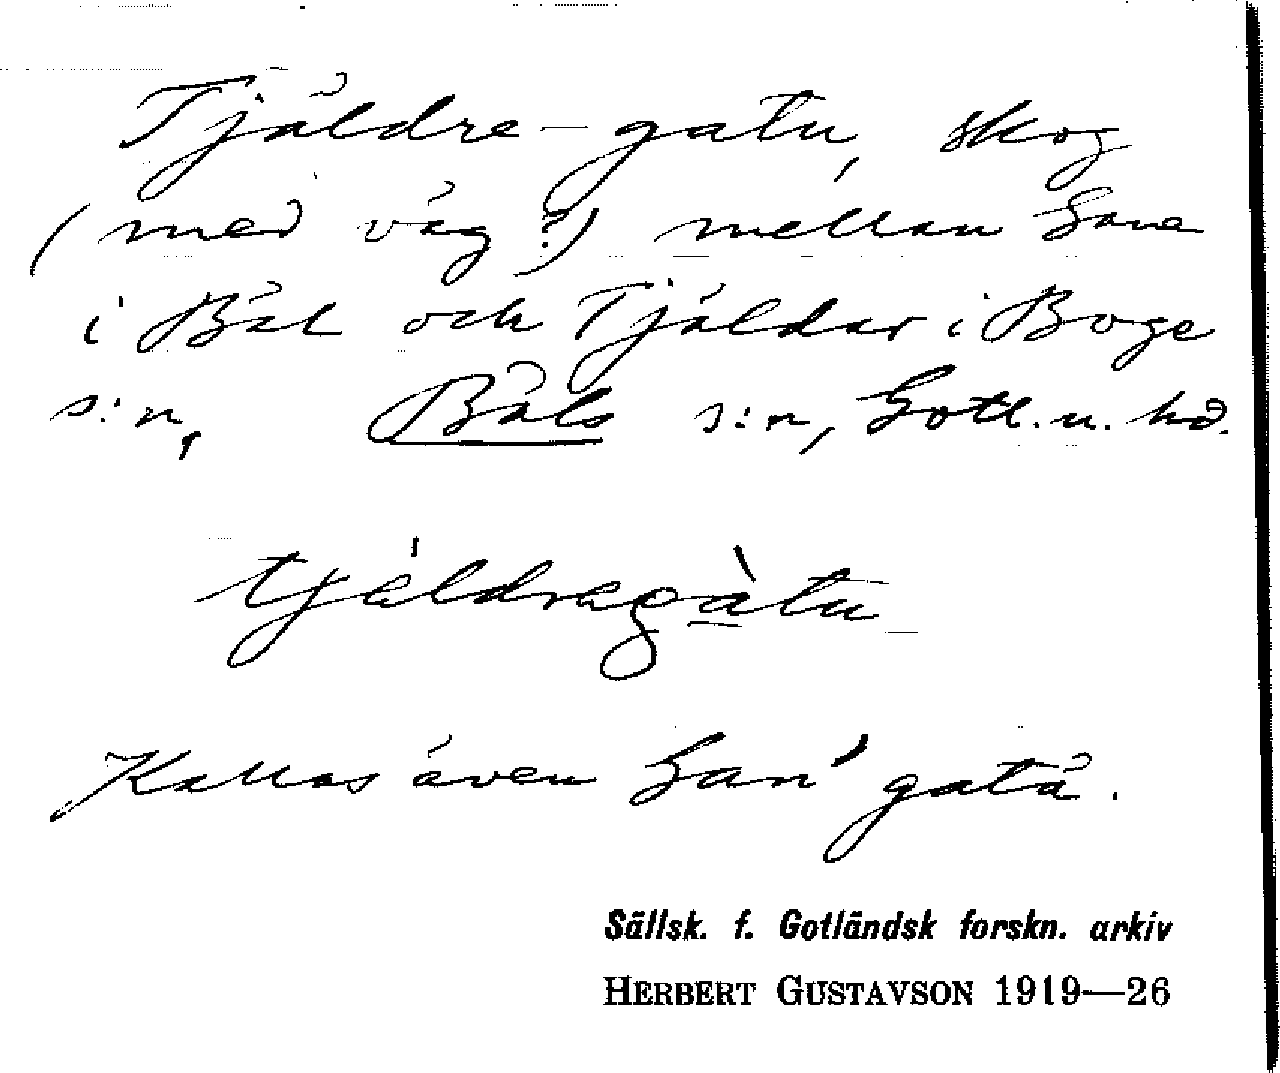 Tjäldre-gatu, skog
(med väg?) mellan Gane
i Bäl och Tjälder i Boge
s:n, Bäls s:n, Gotl. n. hd.
tjäldregàtu
Kallas även Gan' gatå.
Sällsk. f. Gotländsk forskn. arkiv
HERBERT GUSTAVSON 1919—26